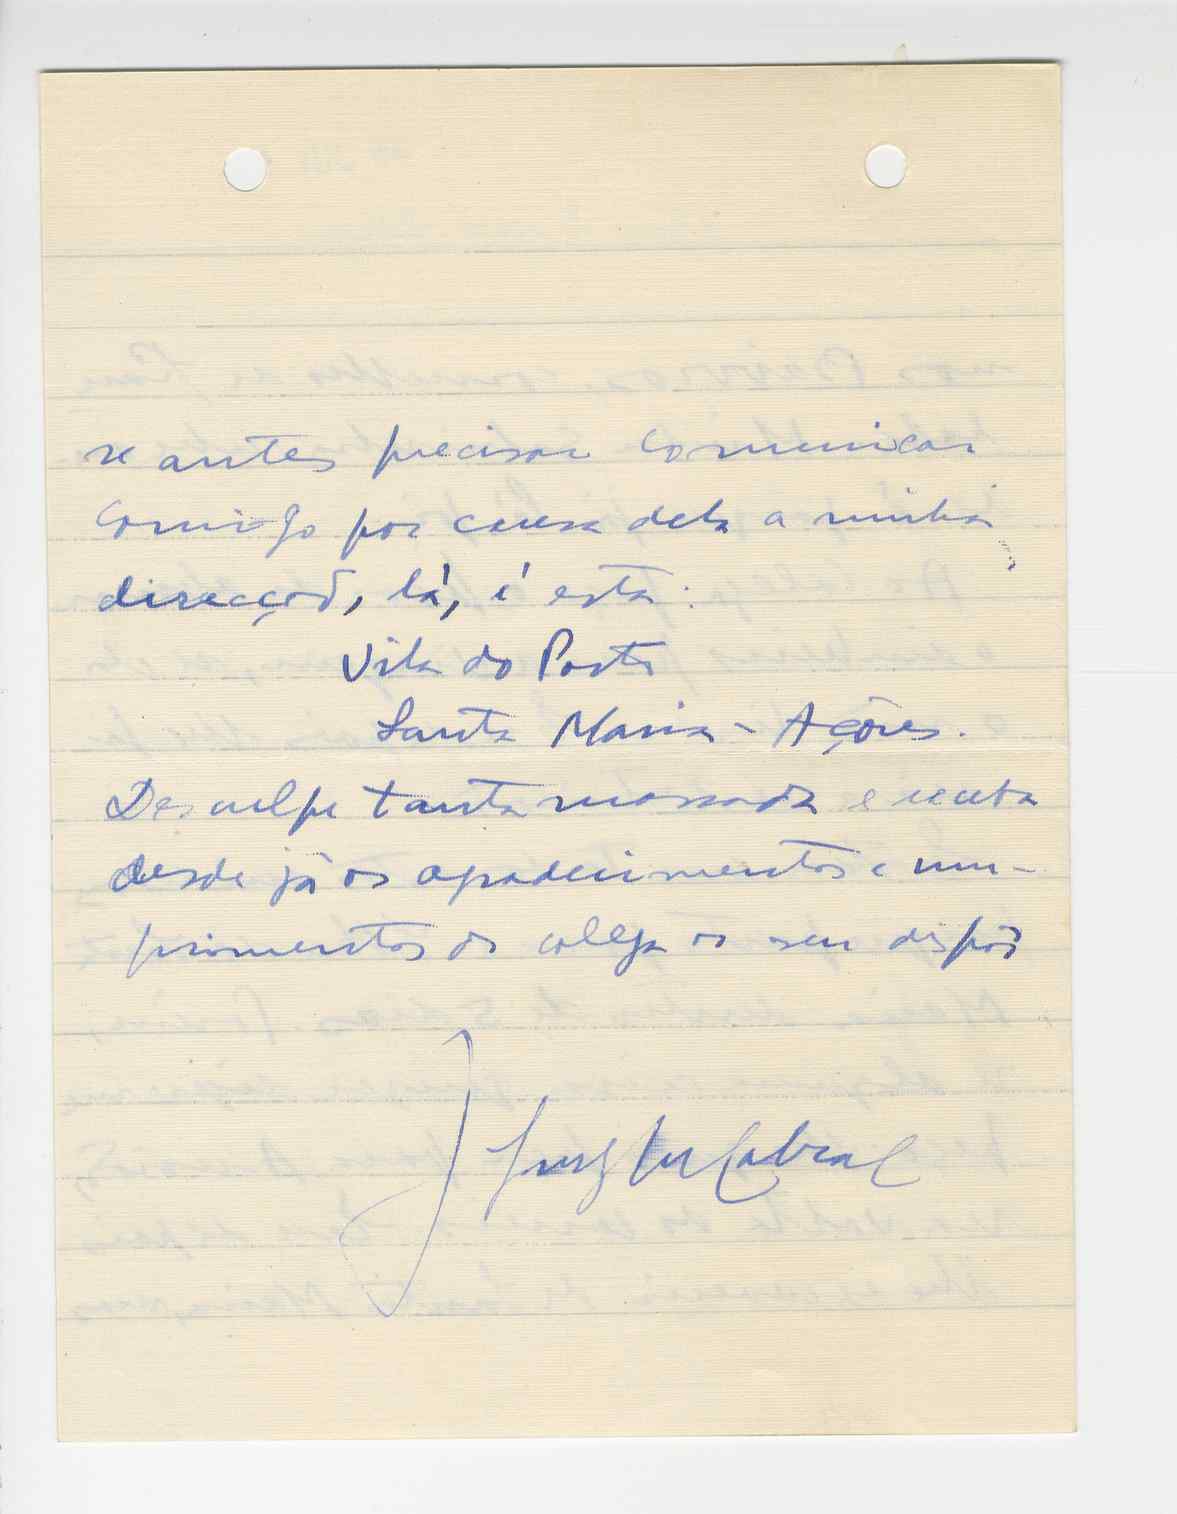 se antes precisar comunicar
comigo por causa dela a minha
direcção, lá, é esta:
Vila do Porto
Santa Maria - Açores.
Desculpe tanta massada e receba
desde já os agradecimentos e cum-
primentos do colega ao seu dispôr
Cabral